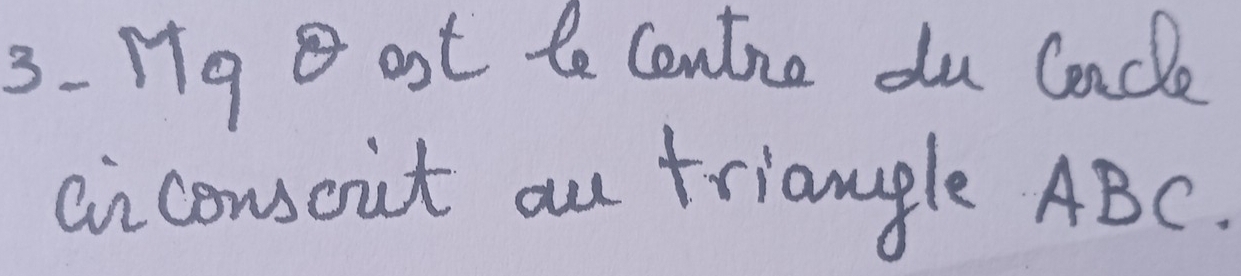 3- Mq θ est le Centre du Cercle
circonscrit au triangle ABC.